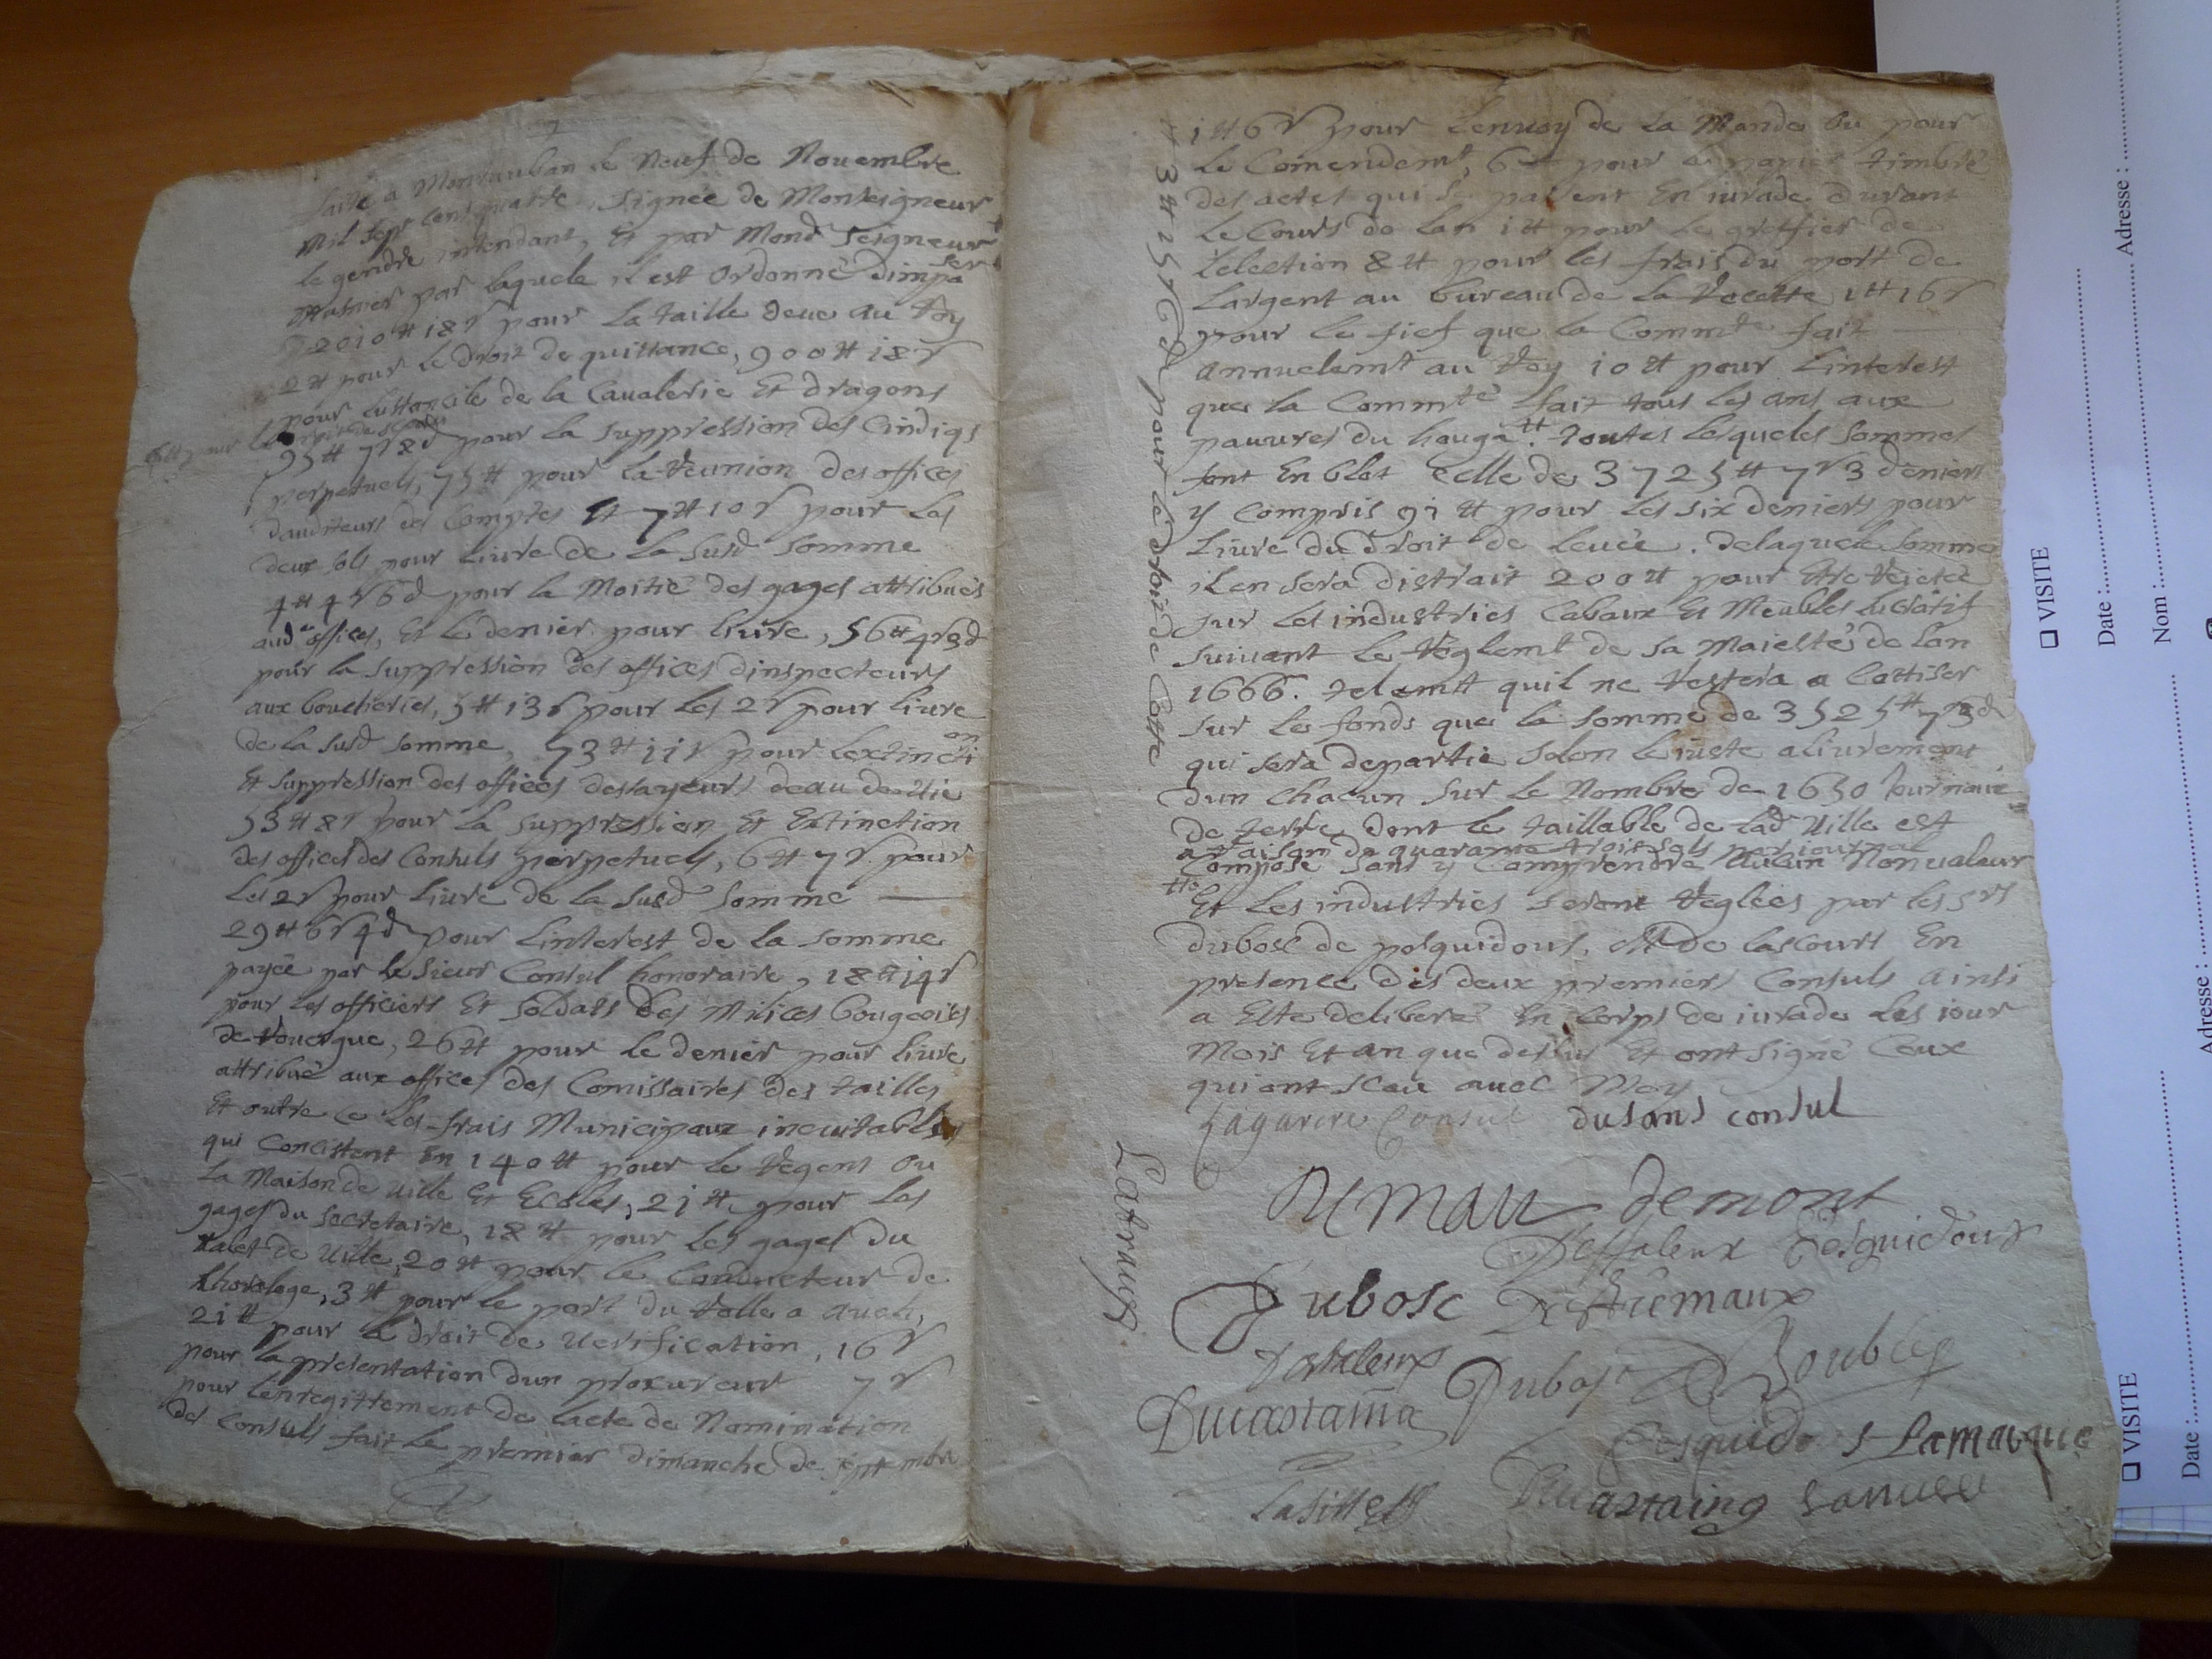 faite a Montauban le Neuf de Nouembre
Mil sept cens quatre, signée de Monseigneur
le gendre intendant, Et par Mond Seigneur
par laquele il est Ordonné dimpo
ser
2010 ₶ 18 s pour la taille deue au Roy
2 ₶ pour le droit de quittance, 900 ₶ 18 s
pour lustancile de la Caualerie Et dragons
95 ₶ 7 s 8 d pour la suppression des Cindiqs
perpetuels, 75 ₶ pour la Reunion des offices
dauditeurs des Comptes Et 7 ₶ 10 s pour les
deux sols pour Liure de la susd somme
4 ₶ 4 s 6 d pour la Moitié des gages attribués
aud offices, Et le denier pour liure, 56 ₶ 4 s 3 d
pour la suppression des offices dinspecteurs
aux boucheries, 5 ₶ 13 s pour les 2 s pour liure
de la susd somme, 53 ₶ 11 s pour lextincti
on
Et suppression des offices dessayeurs deau de vie
53 ₶ 8 s pour la suppression Et Extinction
des offices des Consuls perpetuels, 6 ₶ 7 s pour
les 2 s pour liure de la susd somme
29 ₶ 6 s 4 d pour linterest de la somme
payée par le sieur Consul honoraire, 18 ₶ 14 s
pour les officiers Et soldats des Milices bougeoises
de Rouergue, 26 ₶ pour le denier pour liure
attribué aux offices des Comissaires des tailles
Et outre ce les frais Municipaux ineuitables
qui Concistent En 140 ₶ pour le Regent ou
la Maison de uille Et Ecoles, 21 ₶ pour les
gages du secretaire, 18 ₶ pour les gages du
valet de uille, 20 ₶ pour le Conducteur de
lhorologe, 3 ₶ pour le port du Rolle a auch,
21 ₶ pour le droit de uerification, 16 s
pour la presentation dun procureur 7 s
pour lenregittement de lacte de Nomination
des Consuls fait le premier dimanche de septembre
1 ₶ 6 s pour lenuoy de la Mande ou pour
le Comendemt, 6 ₶ pour le papier timbré
des actes qui se pasent En iurade durant
le Cours de lan 1 ₶ pour le greffier de
lelection 8 ₶ pour les frais du port de
largent au bureau de la Recette 1 ₶ 16 s
pour le fief que la Commte fait
annuelemt au Roy 10 ₶ pour linterest
que la Commté fait tous les ans aux
pauures du houga. toutes lesqueles sommes
font En blot Celle de 3725 ₶ 7 s 3 deniers
y Compris 91 ₶ pour les six deniers pour
Liure du droit de leuée. delaquele somme
il en sera distrait 200 ₶ pour Etre Reietée
sur les industries Cabaux Et Meubles lucratif
suiuant le Reglemt de sa Maiesté de lan
1666. telemt quil ne Restera a Cottiser
sur les fonds que la somme de 3525 ₶ 7 s 3 d
qui sera departie selon le iuste aliurement
dun chacun sur le Nombre de 1650 Journaux
de terre dont le taillable de lad uille est
a raison de quarante trois sols par journal
Composé sans y Comprendre aucun Nonualeur
Et les industries seront Reglées par les srs
dubosc de pesquidous, Et de lascours En
presence des deux premiers Consuls ainsi
a Esté deliberé En Corps de iurade les iour
Mois Et an que dessus Et ont signé Ceux
qui ont sceu auec Moy
Lagarere Consul dusans consul
demont
Pesquidoux
Dubosc
Dubosc
Ducastaing
Pesquidous Lamarque
Lasitte
Ducastaing
3 ₶ 2 s 6 d pour le droit de Cotte
Labrauss
VISITE
Date :
Nom :
Adresse :
VISITE
Date :
Adresse :